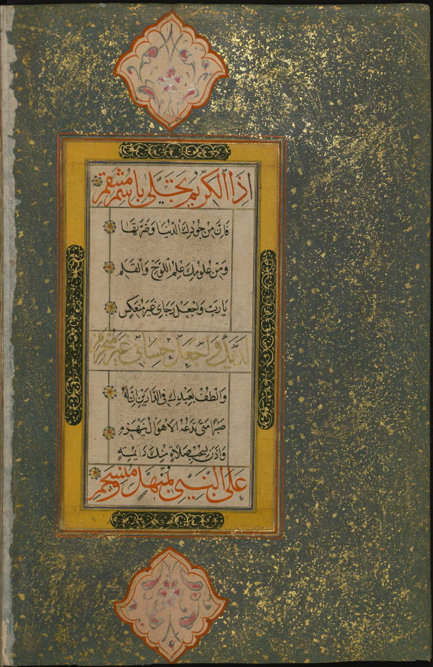 اِذَا الْكَرِيمُ تَجَلَّى بِاسْمِ مُنْتَقِمِ
فَاِنَّ مِنْ جُودِكَ الدُّنْيَا وَضَرَّتَهَا
وَمِنْ عُلُومِكَ عِلْمَ اللَّوْحِ وَالْقَلَمِ
يَارَبِّ وَاجْعَلْ رَجَايِ غَيْرَ مُنْعَكِسٍ
لَدَيْكَ وَاجْعَلْ حِسَابِي غَيْرَ مُنْخَرِمِ
وَالْطُفْ بِعَبْدِكَ فِي الدَّارَيْنِ اِنَّ لَهُ
صَبْرًا مَتَى تَدْعُهُ الْاَهْوَالُ يَنْهَزِمِ
وَأْذَنْ لِسُحْبِ صَلَاةٍ مِنْكَ دَائِمَةٍ
عَلَى النَّبِيِّ بِمُنْهَلٍّ وَمُنْسَجِمِ